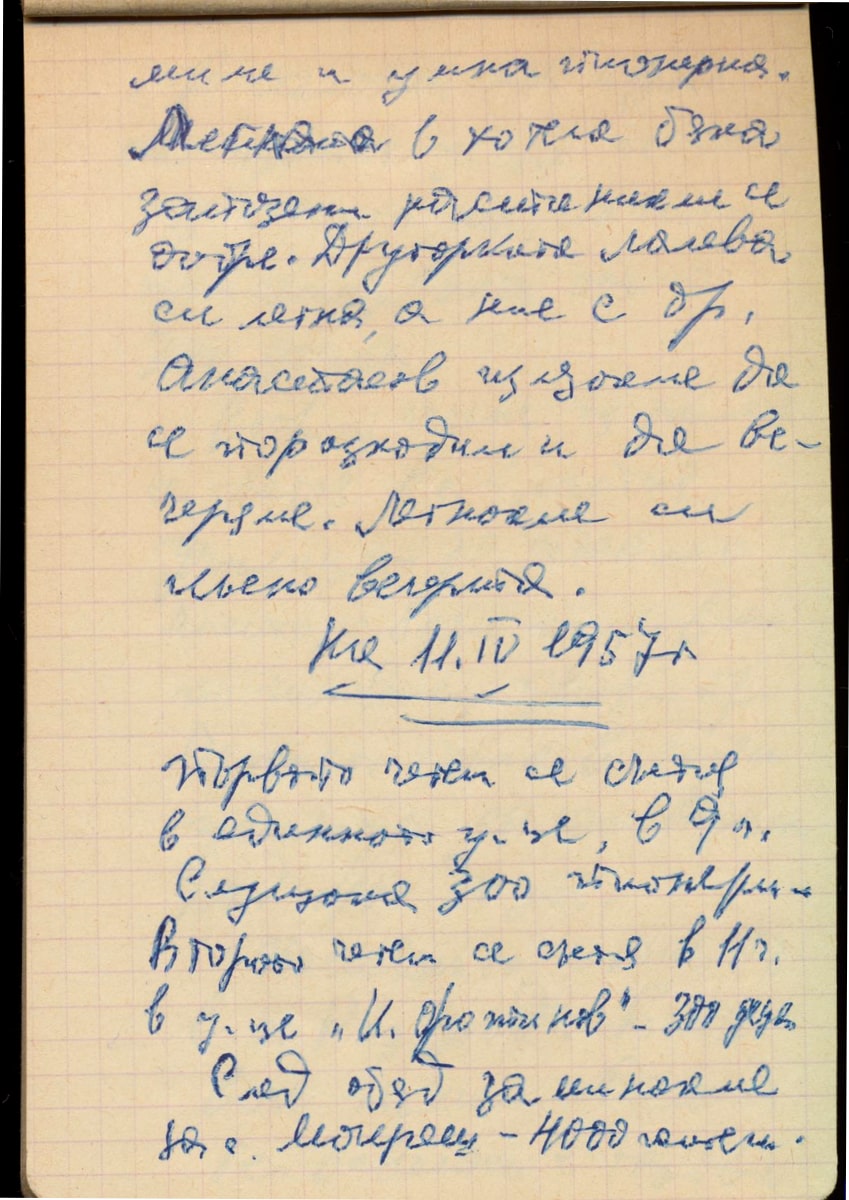 мила и умна пионерка.
Леглата в хотела бяха
запазени настанихме се
добре. Другарката Лалева
си легна, а ние с др.
Анастасов излязохме да
се поразходим и да ве-
черяме. Легнахме си
късно вечерта.
На 11.IV 1957 г
Първото четене се състоя
в единното у-ще, в 9 ч.
Слушаха 300 пионери.
Второто четене се състоя в 11 ч.
в у-ще "И. Фратинов" - 300 деца
След обяд заминахме
за с. - 4000 жители.